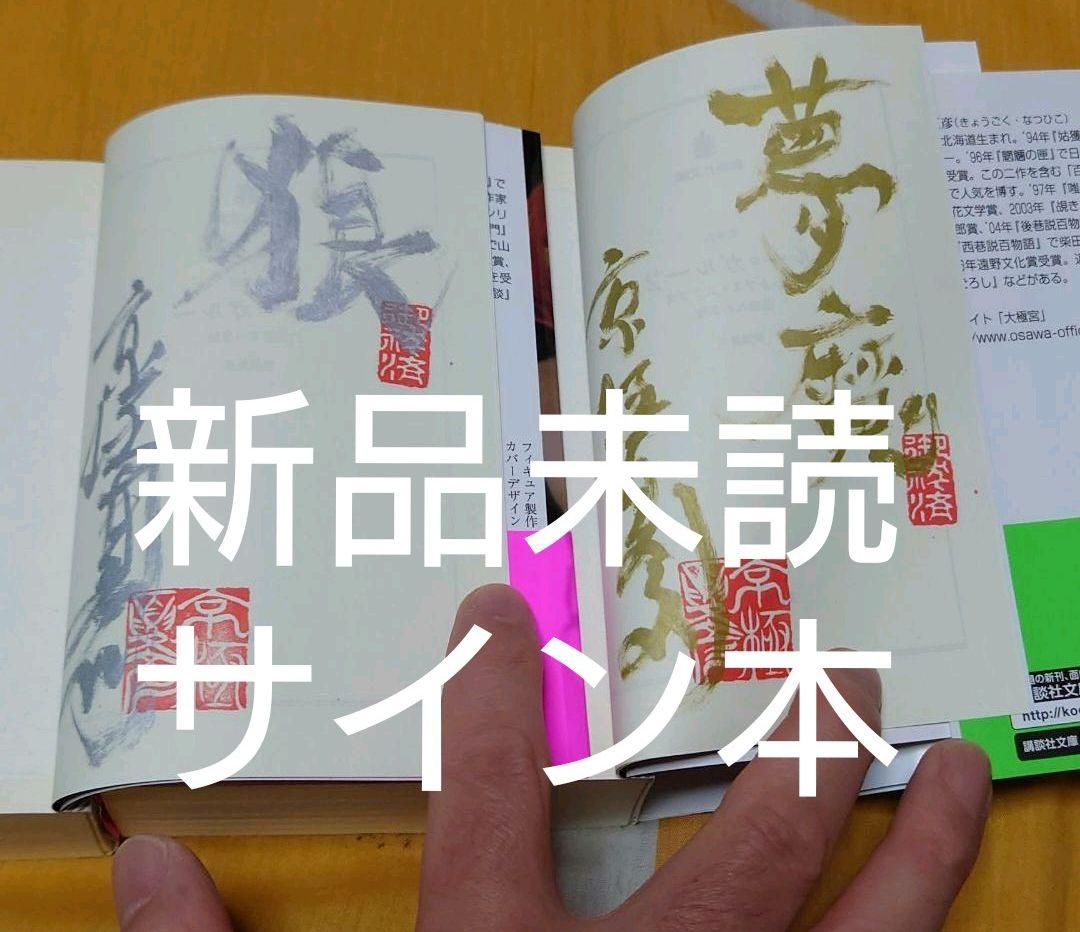 新品未読
サイン本
狼
京極夏彦
御経済
京極
夢魔
京極夏彦
京極
で
作家
シリ
門』
で山
賞、
を受
談』
フィギュア製作
カバーデザイン
彦(きょうごく・なつひこ)
北海道生まれ。'94年『姑獲
ー。'96年『魍魎の匣』で日
受賞。この二作を含む「百
で人気を博す。'97年『嗤
花文学賞、2003年『覘き
郎賞、'04年『後巷説百物
『西巷説百物語』で柴田
6年遠野文化賞受賞。近
ごろし』などがある。
イト「大極宮」
/www.osawa-offic
題の新刊、面
談社文
http://ko
講談社文庫